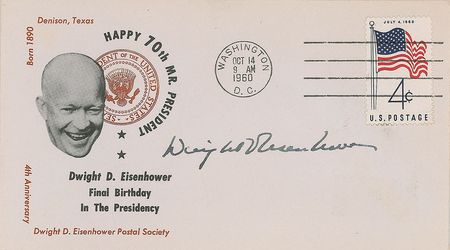 Denison, Texas
Born 1890
HAPPY 70th MR. PRESIDENT
DENT OF THE UNITED STATES
SE
WASHINGTON
OCT 14
9 AM
1960
D. C.
JULY 4, 1960
4¢
U.S. POSTAGE
Dwight D. Eisenhower
Dwight D. Eisenhower
Final Birthday
In The Presidency
4th Anniversary
Dwight D. Eisenhower Postal Society